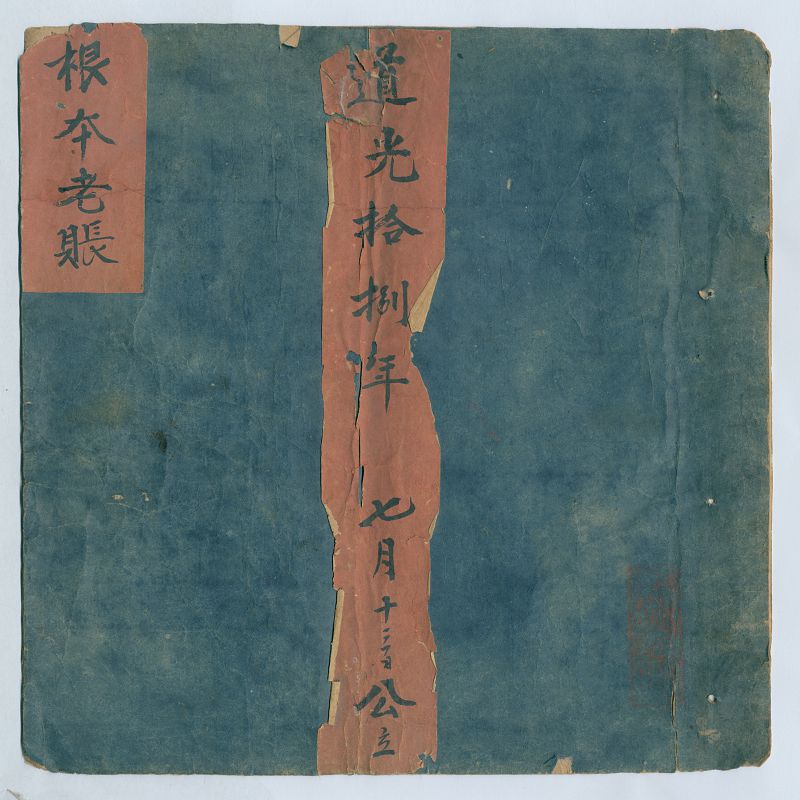 道光拾捌年 七月十三日公立
根本老賬